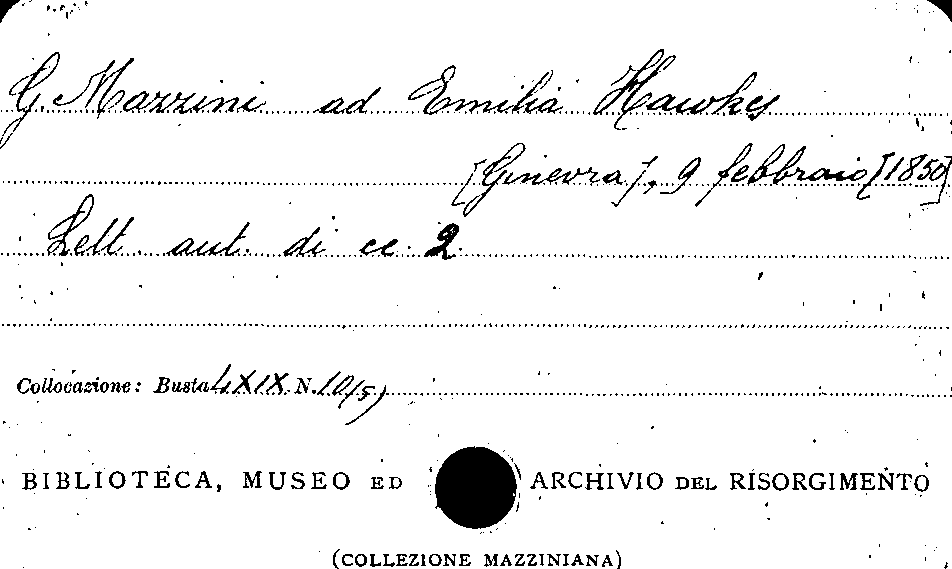 G. Mazzini ad Emilia Hawkes
[Ginevra], 9 febbraio [1850]
Lett. aut. di cc. 2
Collocazione: Busta LXIX N. 10(5)
BIBLIOTECA, MUSEO ED ARCHIVIO DEL RISORGIMENTO
(COLLEZIONE MAZZINIANA)